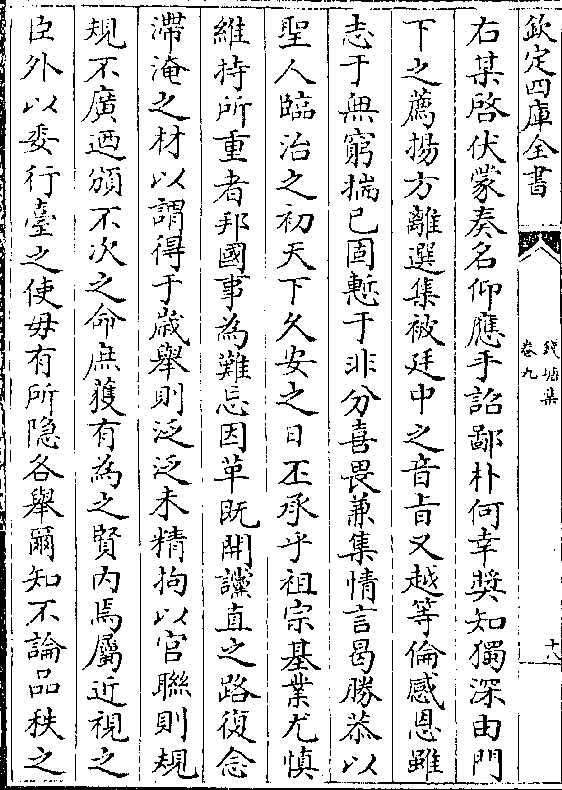 欽定四庫全書
錢塘集
卷九
十八
右某啓伏蒙奏名仰應手詔鄙朴何幸奬知獨深由門
下之薦揚方離選集被廷中之音旨又越等倫感恩雖
志于無窮揣已固慙于非分喜畏兼集情言曷勝恭以
聖人臨治之初天下久安之日丕承乎祖宗基業尤慎
維持所重者邦國事為難忘因革既開讜直之路復念
滯淹之材以謂得于歳舉則泛泛未精拘以官聯則規
規不廣迺頒不次之命庶獲有為之賢内焉屬近視之
臣外以委行臺之使毋有所隐各舉爾知不論品秩之